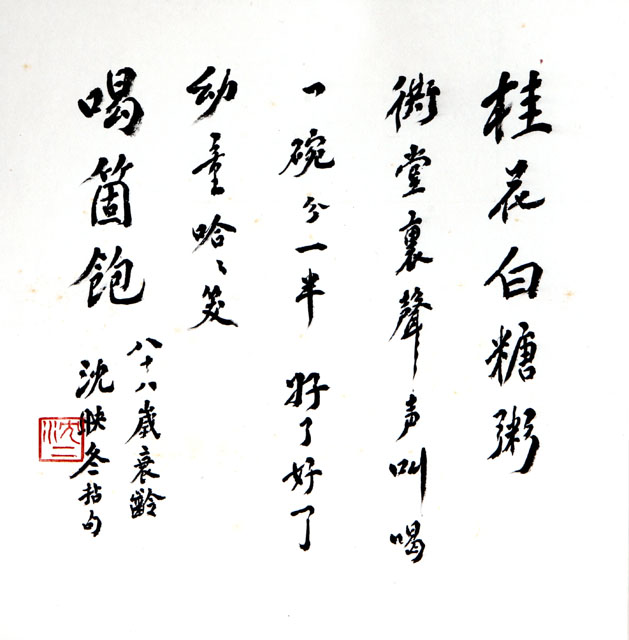 桂花白糖粥
衖堂裏聲声叫喝
一碗分一半 好了好了
幼童哈〻笑
喝箇飽
八十八歲衰齡
沈映冬拈句
沈二